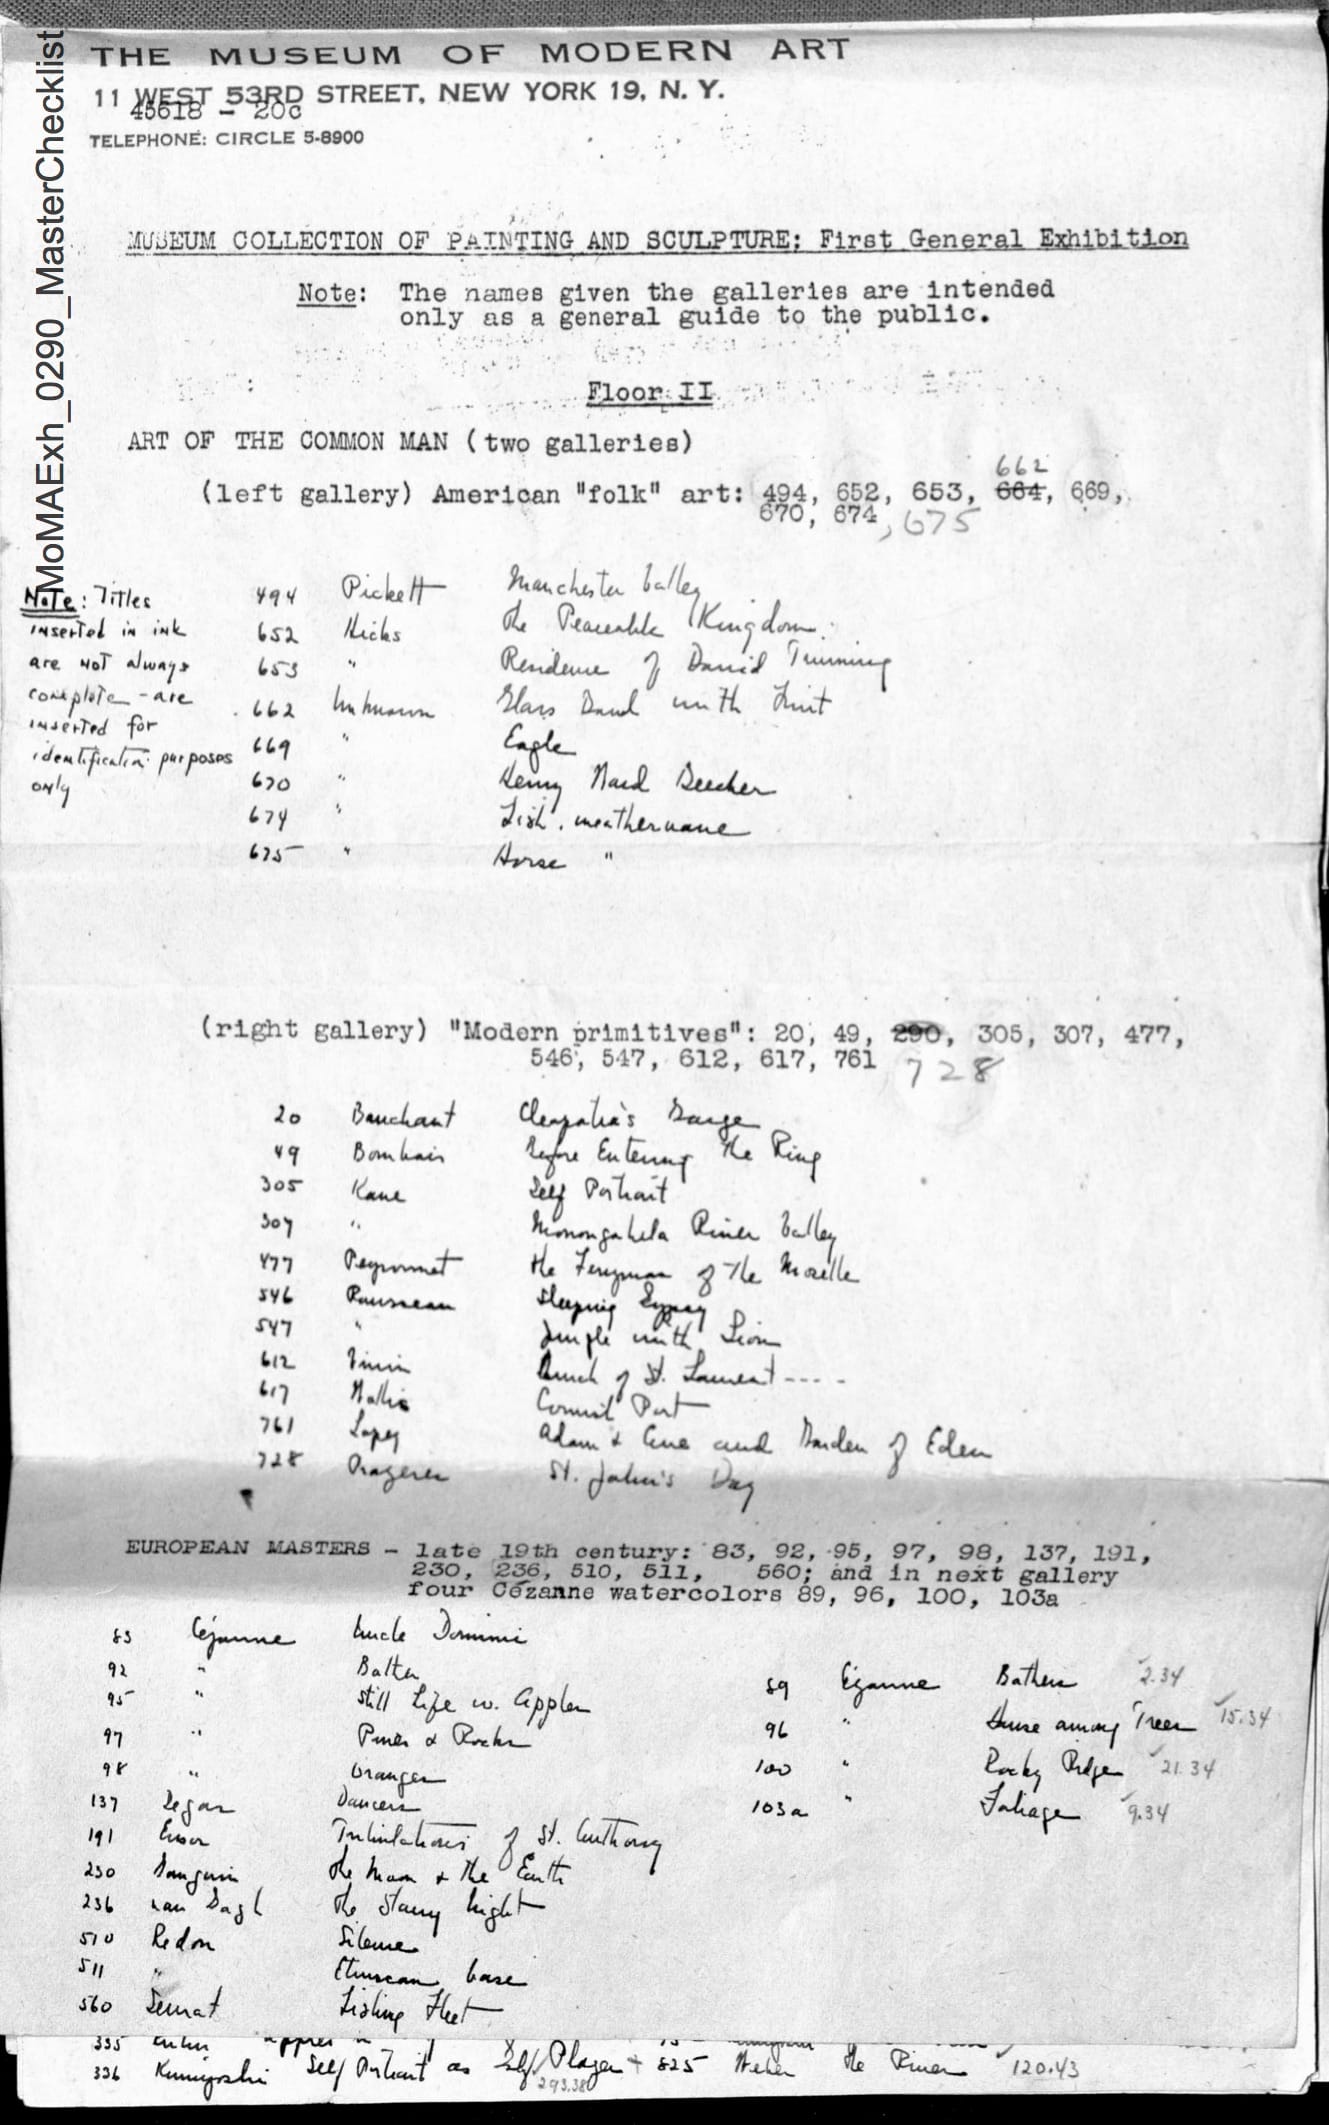 MoMAExh_0290_MasterChecklist
THE MUSEUM OF MODERN ART
11 WEST 53RD STREET, NEW YORK 19, N. Y.
45618 - 20c
TELEPHONE: CIRCLE 5-8900
MUSEUM COLLECTION OF PAINTING AND SCULPTURE: First General Exhibition
Note: The names given the galleries are intended
only as a general guide to the public.
Floor II
ART OF THE COMMON MAN (two galleries)
662
(left gallery) American "folk" art: 494, 652, 653, 664, 669,
670, 674, 675
Note: Titles
inserted in ink
are not always
complete - are
inserted for
identification purposes
only
494 Pickett Manchester Valley
652 Hicks The Peaceable Kingdom
653 " Residence of David Twining
662 Unknown Glass Bowl with Fruit
669 " Eagle
670 " Henry Ward Beecher
674 " Fish, weathervane
675 " Horse "
(right gallery) "Modern primitives": 20, 49, 290, 305, 307, 477,
546, 547, 612, 617, 761 728
20 Bauchant Cleopatra's Barge
49 Bombois Before Entering the Ring
305 Kane Self Portrait
307 " Monongahela River Valley
477 Peyronnet The Ferryman of the Moselle
546 Rousseau Sleeping Gypsy
547 " Jungle with Lion
612 Vivin Church of St. Laurent ----
617 Wallis Cornish Port
761 Lopez Adam & Eve and Garden of Eden
728 St. John's Day
EUROPEAN MASTERS - late 19th century: 83, 92, 95, 97, 98, 137, 191,
230, 236, 510, 511, 560; and in next gallery
four Cézanne watercolors 89, 96, 100, 103a
83 Cézanne Uncle Dominic
92 " Bather
95 " Still Life w. Apples
97 " Pines & Rocks
98 " Oranges
137 Degas Dancers
191 Ensor Tribulations of St. Anthony
230 Gauguin The Moon & the Earth
236 van Gogh The Starry Night
510 Redon Silence
511 " Etruscan Vase
560 Seurat Fishing Fleet
89 Cézanne Bathers 2.34
96 " House among Trees 15.34
100 " Rocky Ridge 21.34
103a " Foliage 9.34
335
336 Kuniyoshi Self Portrait as Golf Player 293.38
825 Weber The River 120.43